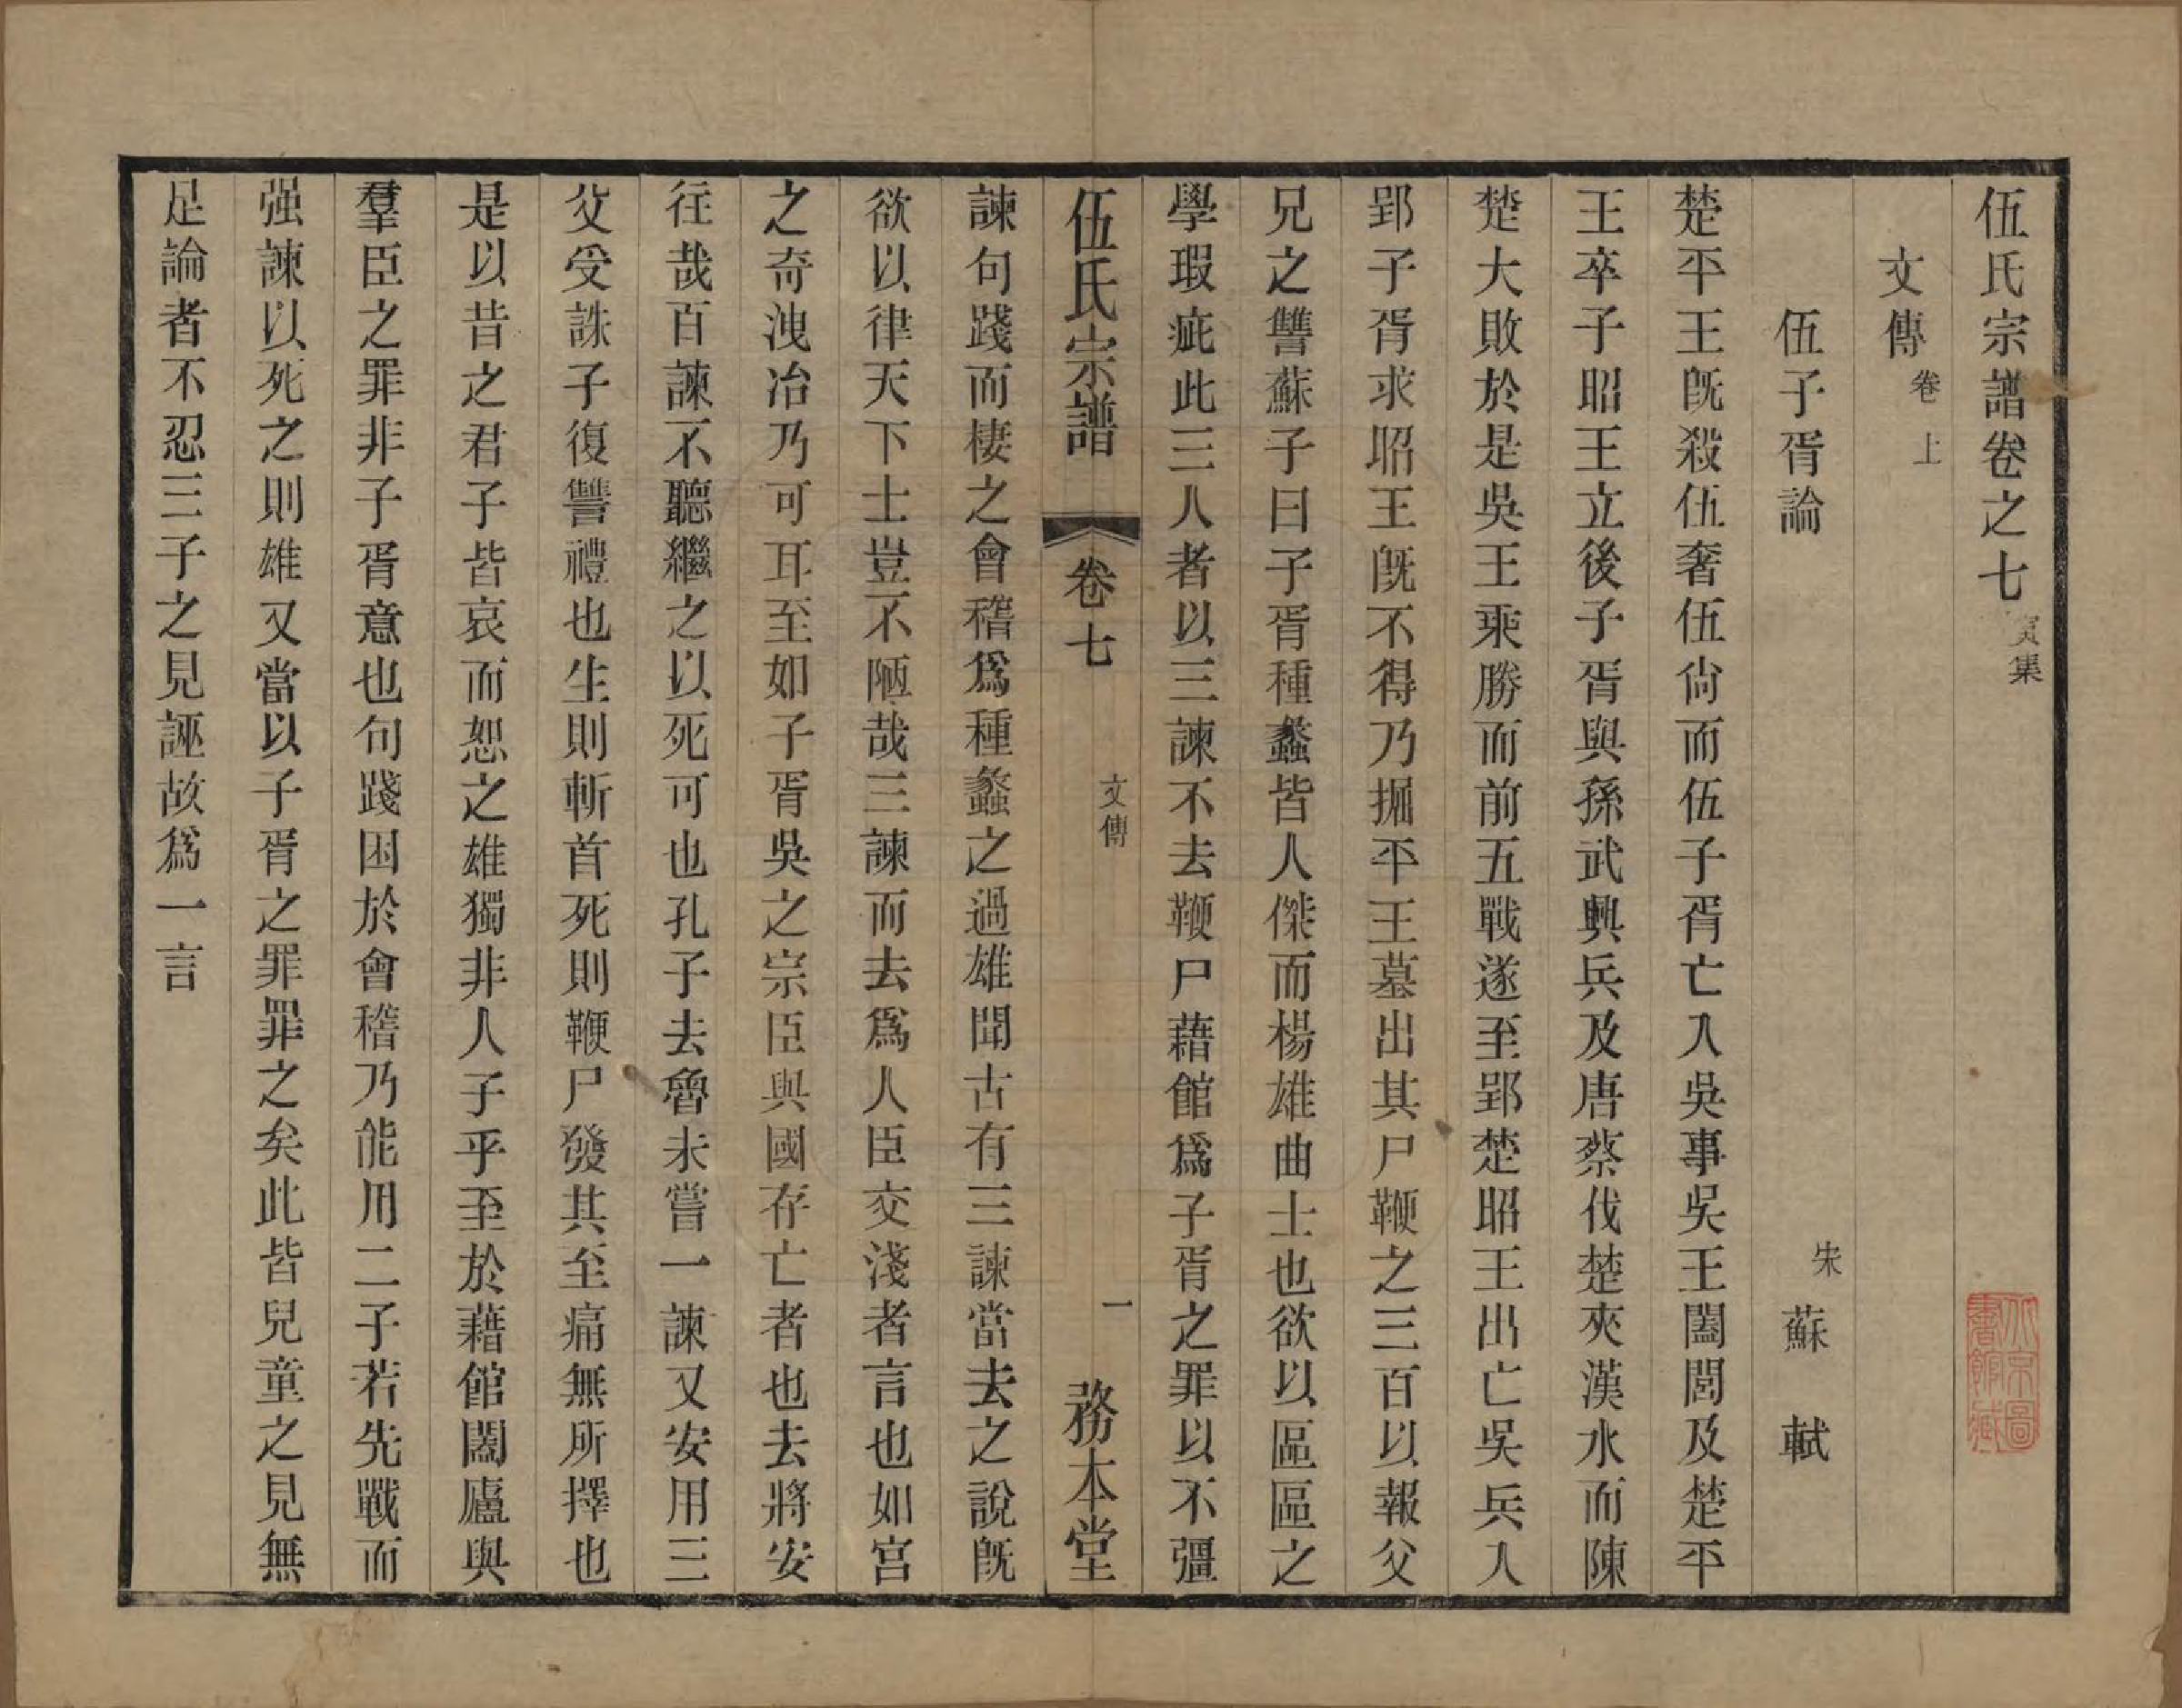 伍氏宗譜卷之七 集
文傳 卷上
伍子胥論 宋 蘇軾
楚平王旣殺伍奢伍尙而伍子胥亡入吳事吳王闔閭及楚平
王卒子昭王立後子胥與孫武興兵及唐蔡伐楚夾漢水而陳
楚大敗於是吳王乘勝而前五戰遂至郢楚昭王出亡吳兵入
郢子胥求昭王旣不得乃掘平王墓出其尸鞭之三百以報父
兄之讐蘇子曰子胥種蠡皆人傑而楊雄曲士也欲以區區之
學瑕疵此三人者以三諫不去鞭尸藉館爲子胥之罪以不彊
伍氏宗譜 卷七 文傳 一 務本堂
諫句踐而棲之會稽爲種蠡之過雄聞古有三諫當去之說旣
欲以律天下士豈不陋哉三諫而去爲人臣交淺者言也如宮
之奇洩冶乃可耳至如子胥吳之宗臣與國存亡者也去將安
往哉百諫不聽繼之以死可也孔子去魯未嘗一諫又安用三
父受誅子復讐禮也生則斬首死則鞭尸發其至痛無所擇也
是以昔之君子皆哀而恕之雄獨非人子乎至於藉館闔廬與
羣臣之罪非子胥意也句踐困於會稽乃能用二子若先戰而
强諫以死之則雄又當以子胥之罪罪之矣此皆兒童之見無
足論者不忍三子之見誣故爲一言